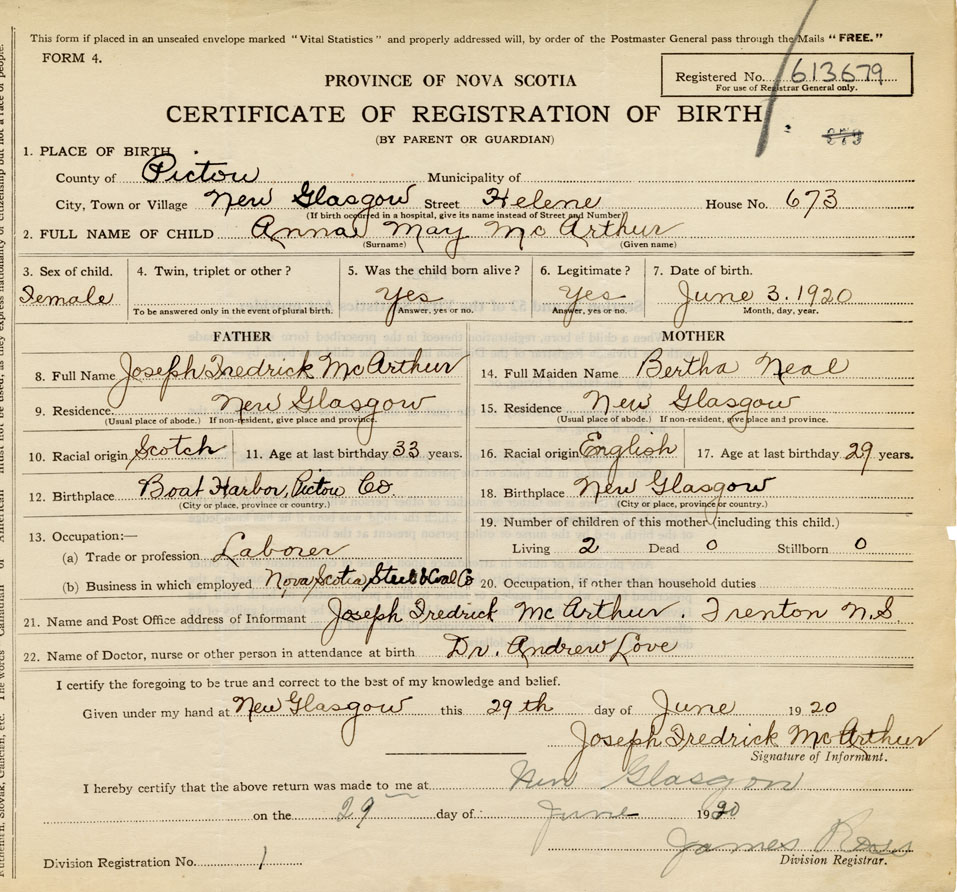 This form if placed in an unsealed envelope marked "Vital Statistics" and properly addressed will, by order of the Postmaster General pass through the Mails "FREE."
FORM 4.
Registered No. 613679
For use of Registrar General only.
PROVINCE OF NOVA SCOTIA
CERTIFICATE OF REGISTRATION OF BIRTH
(BY PARENT OR GUARDIAN)
1. PLACE OF BIRTH
County of Pictou Municipality of
City, Town or Village New Glasgow Street Helene House No. 673
(If birth occurred in a hospital, give its name instead of Street and Number)
2. FULL NAME OF CHILD Anna May McArthur
(Surname) (Given name)
3. Sex of child. 4. Twin, triplet or other? 5. Was the child born alive? 6. Legitimate? 7. Date of birth.
Female Yes Yes June 3. 1920
To be answered only in the event of plural birth. Answer, yes or no. Answer, yes or no. Month, day, year.
FATHER
8. Full Name Joseph Fredrick McArthur
9. Residence. New Glasgow
(Usual place of abode.) If non-resident, give place and province.
10. Racial origin Scotch 11. Age at last birthday 33 years.
12. Birthplace Boat Harbor, Pictou Co.
(City or place, province or country.)
13. Occupation:—
(a) Trade or profession Laborer
(b) Business in which employed Nova Scotia Steel & Coal Co
MOTHER
14. Full Maiden Name Bertha Neal
15. Residence New Glasgow
(Usual place of abode.) If non-resident, give place and province.
16. Racial origin English 17. Age at last birthday 29 years.
18. Birthplace New Glasgow
(City or place, province or country.)
19. Number of children of this mother (including this child.)
Living 2 Dead 0 Stillborn 0
20. Occupation, if other than household duties
21. Name and Post Office address of Informant Joseph Fredrick McArthur. Trenton N.S.
22. Name of Doctor, nurse or other person in attendance at birth Dr. Andrew Love
I certify the foregoing to be true and correct to the best of my knowledge and belief.
Given under my hand at New Glasgow this 29th day of June 1920
Joseph Fredrick McArthur
Signature of Informant.
I hereby certify that the above return was made to me at New Glasgow
on the 29 day of June 1920
James Ross
Division Registrar.
Division Registration No. 1